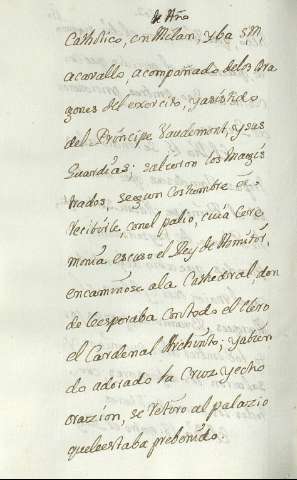 de Año
Catholico, en Milan, yba S.M,
acavallo, acompañado delos Dra
gones del exercito, y asistido
del Principe Vaudemont, y sus
Guardias: salieron los Magis
trados, segun Costumbre â
recivirle, con el palio, cuia Cere
monia escuso el Rey de Admitir,
encaminose ala Cathedral, don
de le esperaba con todo el Clero
el Cardenal Archinto; y abien
do adorado la Cruz, y echo
orazzion, se retiro al palazio
que le estaba prebenido.